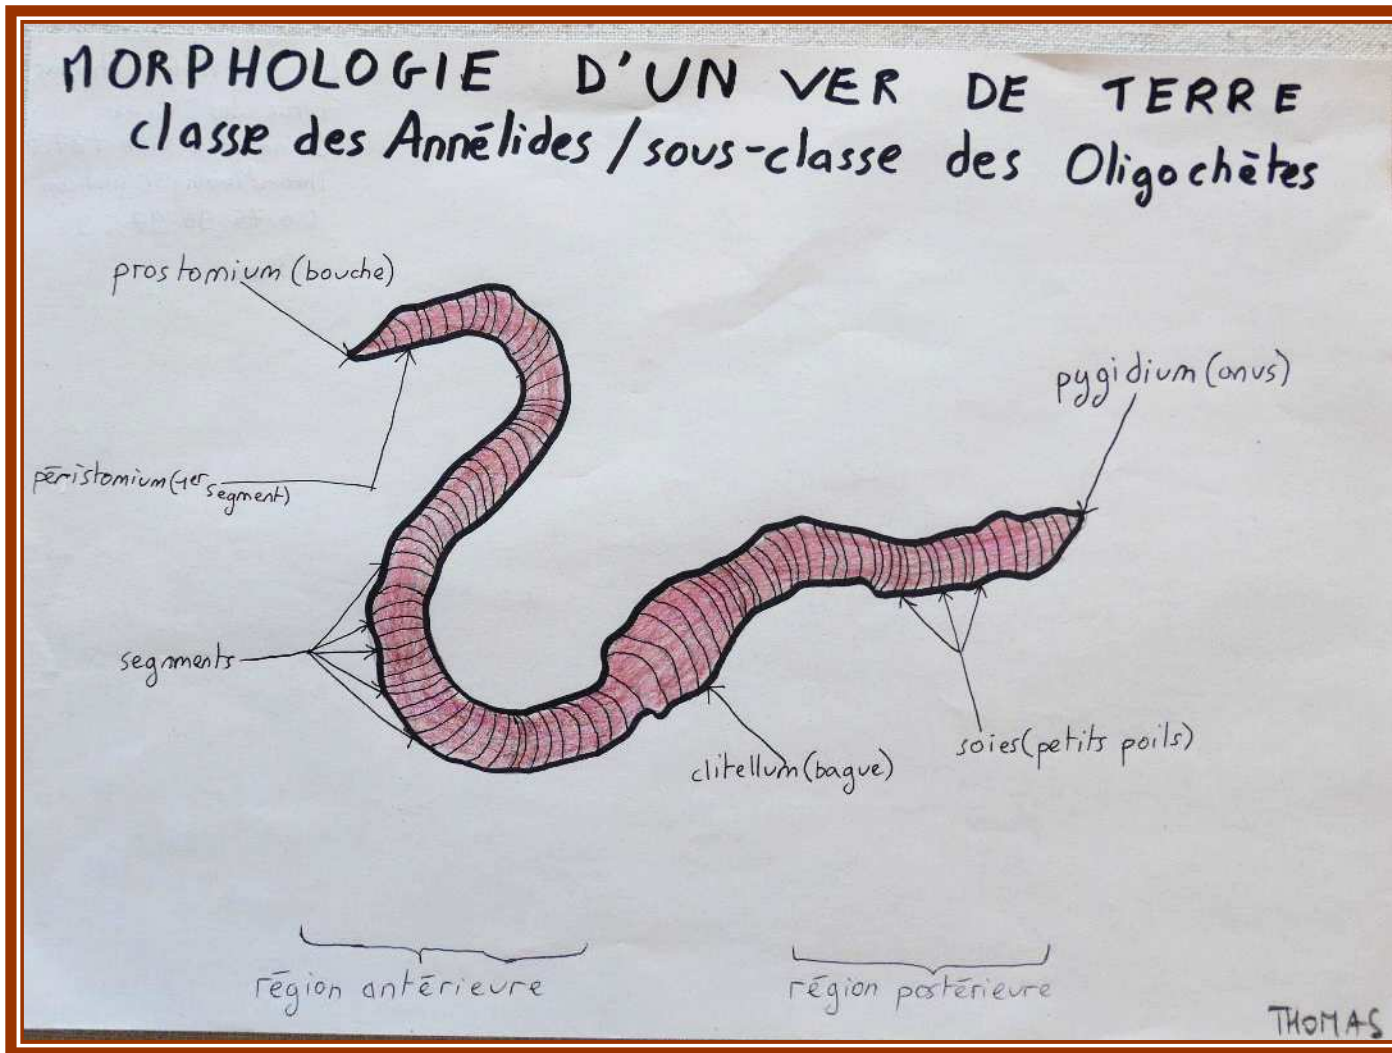 MORPHOLOGIE D'UN VER DE TERRE
classe des Annélides / sous-classe des Oligochètes
prostomium (bouche)
pygidium (anus)
péristomium (1er
segment)
segments
soies (petits poils)
clitellum (bague)
région antérieure
région postérieure
THOMAS